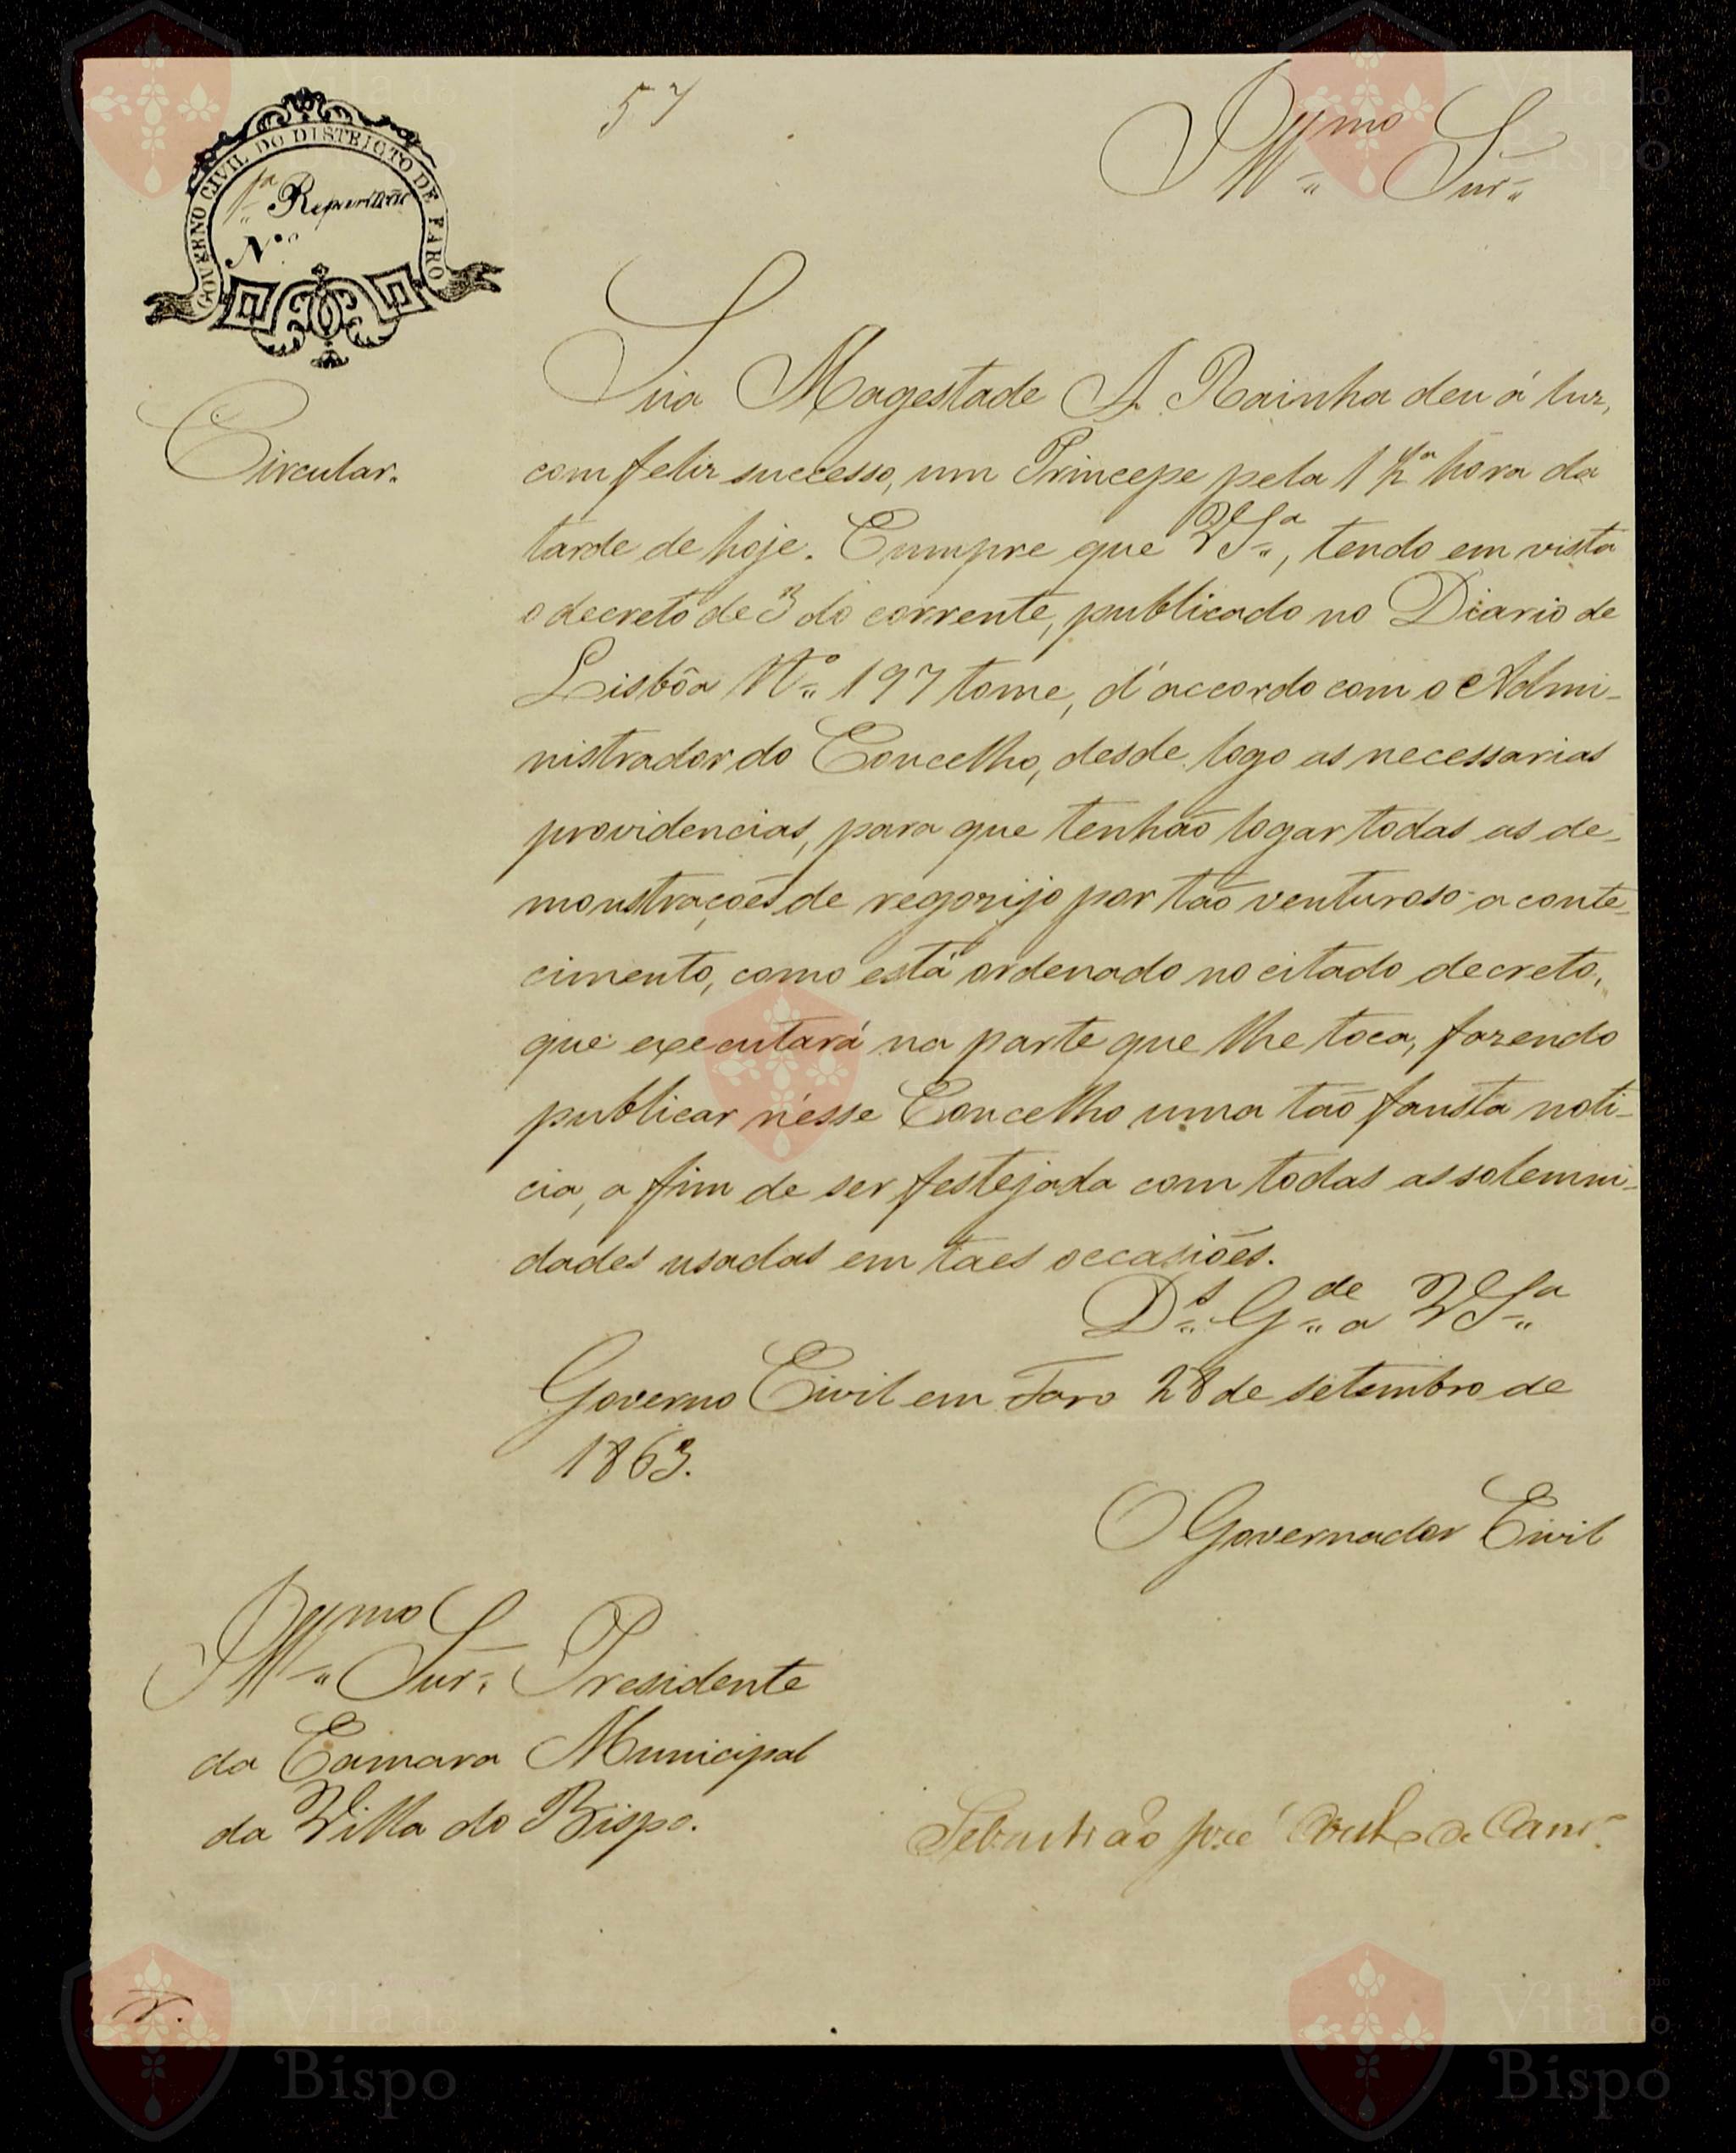 57
Illmo Snr.
GOVERNO CIVIL DO DISTRICTO DE FARO
1.ª Repartição
N.º
Circular.
Sua Magestade A Rainha deu á luz,
com feliz successo, um Princepe pela 1 ½ hora da
tarde de hoje. Cumpre que V Sª, tendo em vista
o decreto de 3 do corrente, publicado no Diario de
Lisbôa Nº 197 tome, d'accordo com o Admi-
nistrador do Concelho, desde logo as necessarias
providencias, para que tenhão logar todas as de-
monstrações de regozijo por tão venturoso aconte-
cimento, como está ordenado no citado decreto,
que executará na parte que lhe toca, fazendo
publicar n'esse Concelho uma tão fausta noti-
cia, a fim de ser festejada com todas as solemni-
dades usadas em taes occasiões.
Ds Gde a V Sª
Governo Civil em Faro 28 de setembro de
1863.
O Governador Civil
Illmo Snr. Presidente
da Camara Municipal
da Villa do Bispo.
Sebastião José
Vila do
Bispo
Vila do
Bispo
Vila do
Bispo